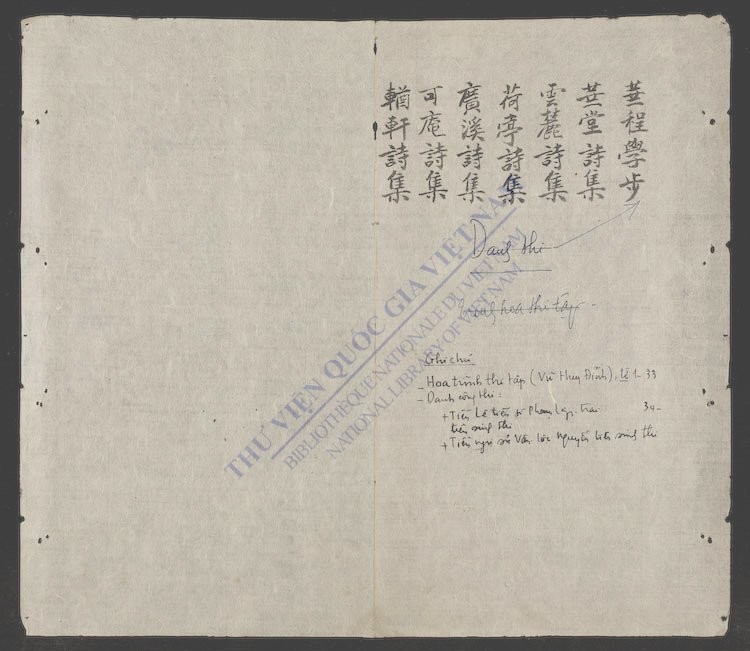 華程學步
華堂詩集
雲麓詩集
荷亭詩集
廣溪詩集
可庵詩集
輶軒詩集
Danh thi
hoa thi tập
THƯ VIỆN QUỐC GIA VIỆT NAM
BIBLIOTHÈQUE NATIONALE DU VIETNAM
NATIONAL LIBRARY OF VIETNAM
Ghi chú
- Hoa trình thi tập (Vũ Huy Đĩnh), tờ 1-33
- Danh công thi:
+ Tiền Lê tiến sĩ Phạm Lập trai 34-
tiên sinh thi
+ Tiền ngự sử Vân lộc Nguyễn tiên sinh thi